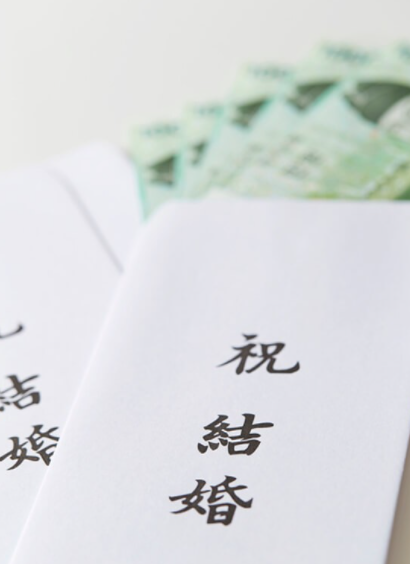 祝
結
婚
結
婚